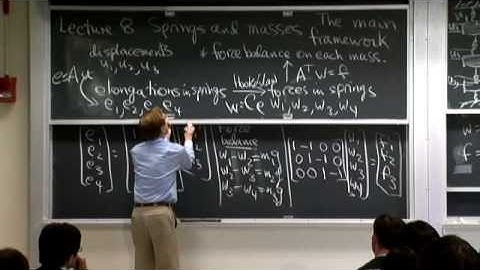 Lecture 8 Springs and masses The main framework
displacements
u₁, u₂, u₃
* force balance on each mass.
e=Au
Aᵀw=f
elongations in springs
Hooke's law
forces in springs
e₁, e₂, e₃, e₄
w=Ce
w₁, w₂, w₃, w₄
force balance
w₁-w₂=m₁g
w₂-w₃=m₂g
w₃-w₄=m₃g
[e₁ e₂ e₃ e₄] =
[1 -1 0 0
0 1 -1 0
0 0 1 -1]
[w₁ w₂ w₃ w₄] = [f₁ f₂ f₃]